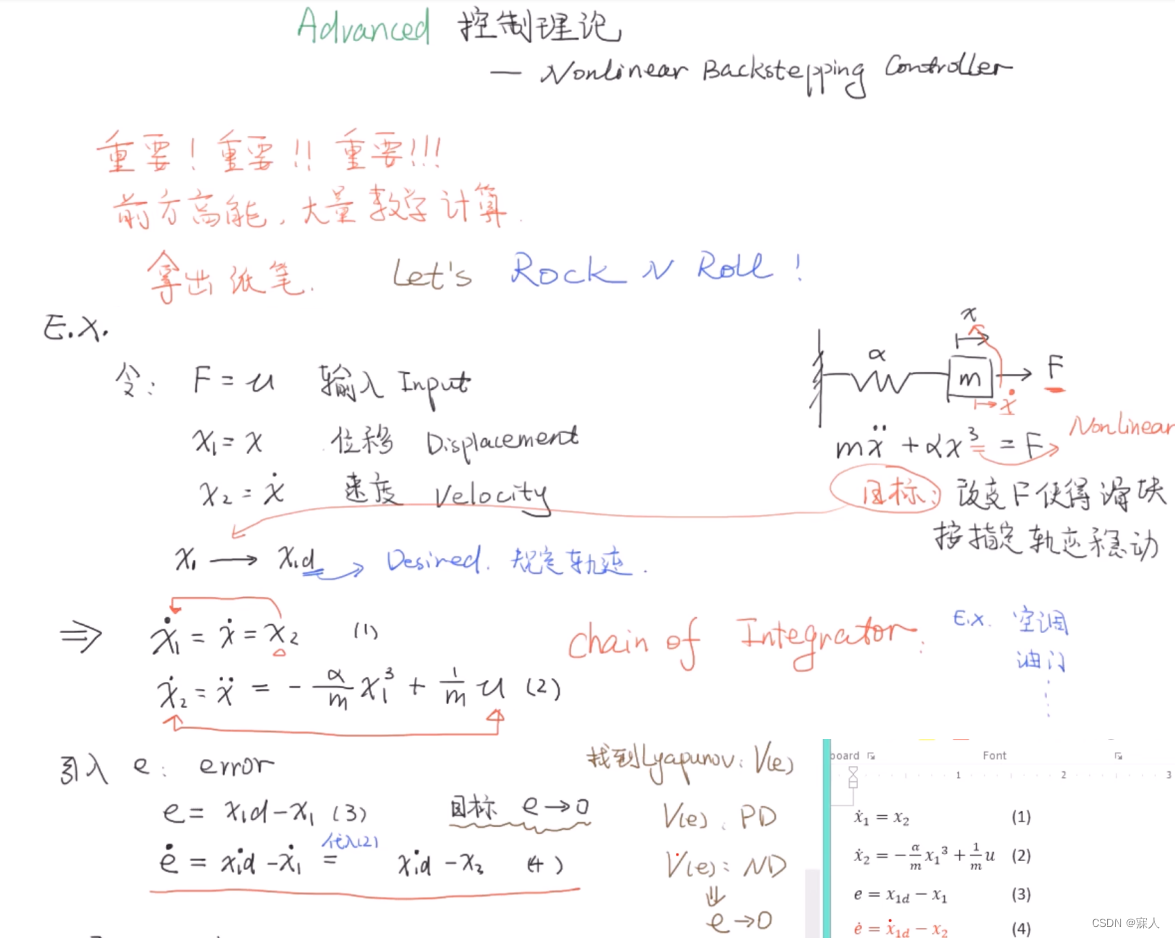 Advanced 控制理论
— Nonlinear Backstepping Controller
重要！重要!! 重要!!!
前方高能，大量数学计算.
拿出纸笔. Let's Rock N Roll !
E.X.
令: F = u 输入 Input
x₁ = x 位移 Displacement
x₂ = ẋ 速度 Velocity
x₁ → x₁d Desired. 规定轨迹.
x
α
m
F
ẋ
mẍ + αx³ = F
Nonlinear
目标: 改变F使得滑块
按指定轨迹移动
⇒ ẋ₁ = ẋ = x₂ (1)
ẋ₂ = ẍ = - α/m x₁³ + 1/m u (2)
Chain of Integrator.
E.x. 空调
油门
引入 e: error
e = x₁d - x₁ (3) 目标 e→0
ė = ẋ₁d - ẋ₁ = ẋ₁d - x₂ (4)
代入(2)
找到Lyapunov: V(e)
V(e): PD
V̇(e): ND
⇓
e→0
board
Font
1 2 3
ẋ₁ = x₂ (1)
ẋ₂ = -α/m x₁³ + 1/m u (2)
e = x₁d - x₁ (3)
ė = ẋ₁d - x₂ (4)
CSDN @寐人